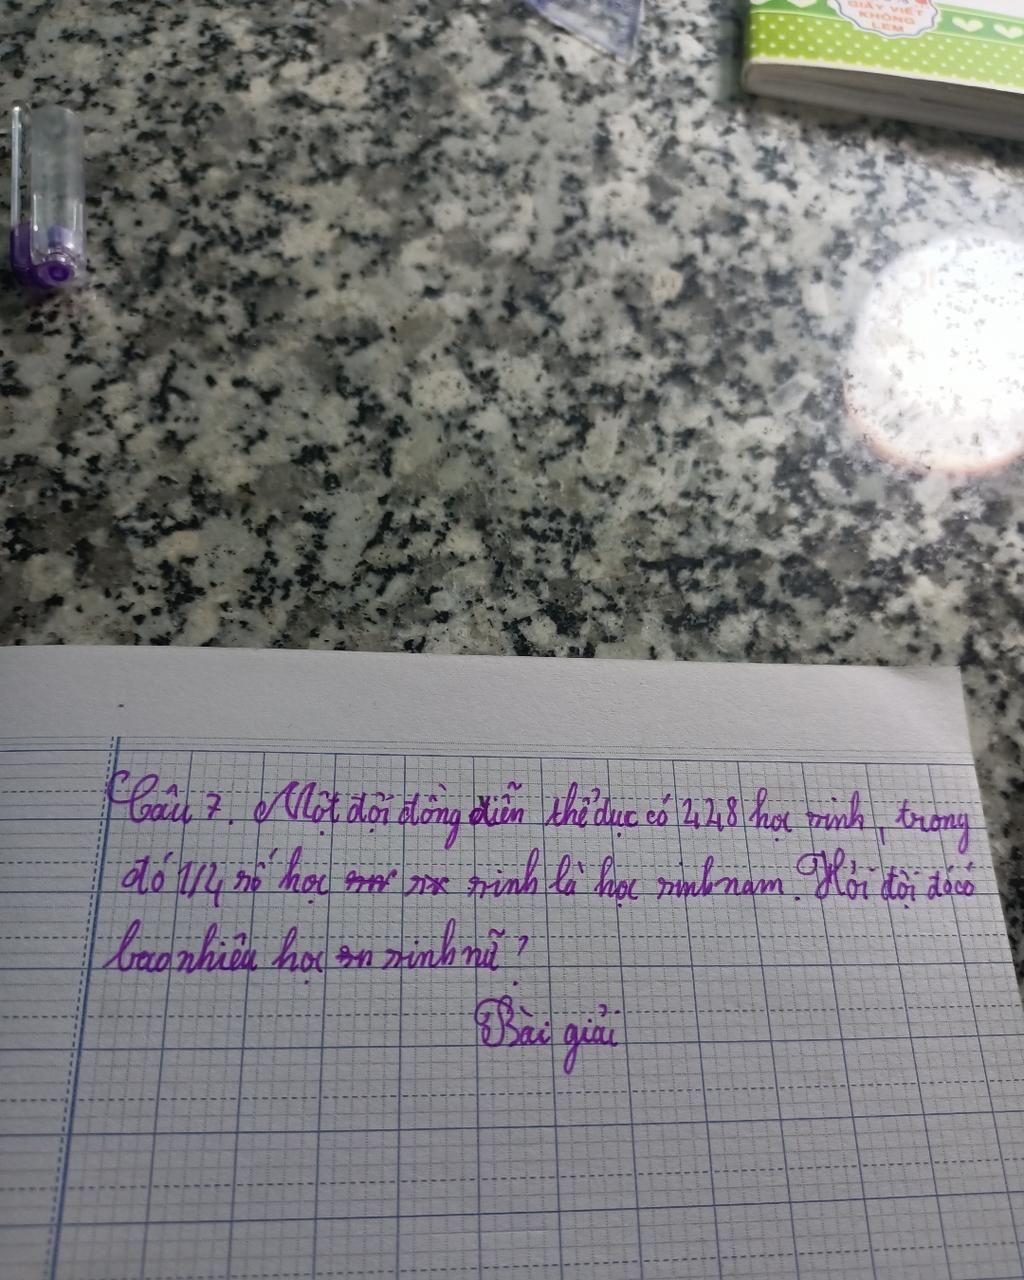 GIẤY VIẾT
KHÔNG
LEM
Câu 7. Một đội đồng diễn thể dục có 448 học sinh, trong
đó 1/4 số học sinh là học sinh nam. Hỏi đội đó có
bao nhiêu học sinh nữ?
Bài giải